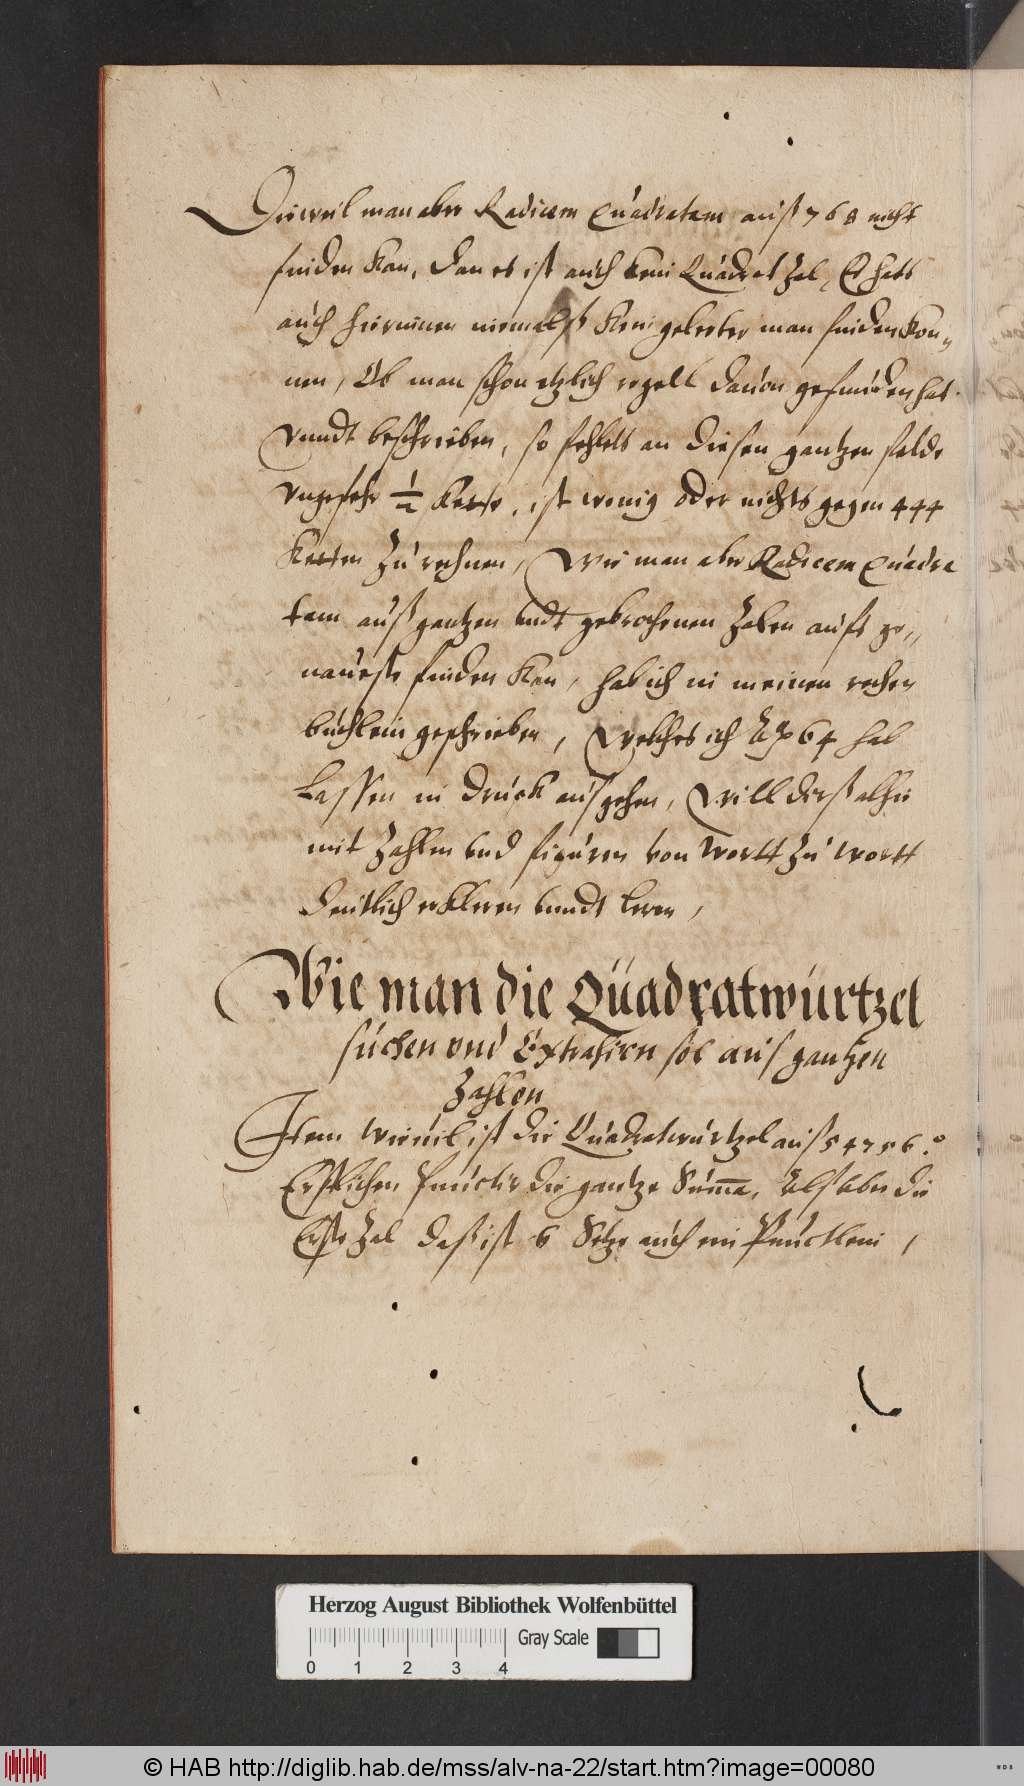 Dieweil man aber Radicem Quadratam auß 768 nicht
finden kan, dan es ist auch kein Quadrat Zal, Es hats
auch hierinnen niemalß kein gelerter man finden kon„
nen, Ob man schon etzlich regell dauon gefunden hat
vnndt beschrieben, so fehlets an diesen gantzen felde
vngefehr ½ Kette, ist wenig oder nichts gegen 444
Ketten Zu rechnen, Wie man aber Radicem Quadra
tam auß gantzen vndt gebrochenen Zalen aufs ge„
naueste finden kan, hab ich in meinen rechen
büchlein geschrieben, Welches ich 64 hab
Lassen in druck ausgehen, Will dirß alhie
mit Zahlen vnd figuren von Wortt Zu Wortt
deutlich erkleren vnndt leren,
Wie man die Quadratwurtzel
suchen vnd Extrahirn sol aus gantzen
Zahlen
Item wieuil ist die Quadratwurtzel auß 54756.
Erstlichen Punctir die gantze Summa, Alß vber die
Erste Zal daß ist 6 Setze auch ein Punctlein,
Herzog August Bibliothek Wolfenbüttel
Gray Scale
0 1 2 3 4
© HAB http://diglib.hab.de/mss/alv-na-22/start.htm?image=00080